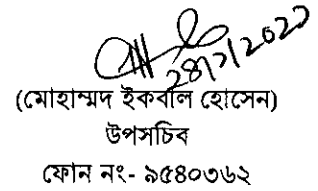 28/7/2022
(মোহাম্মদ ইকবাল হোসেন)
উপসচিব
ফোন নং- ৯৫৪০৩৬২